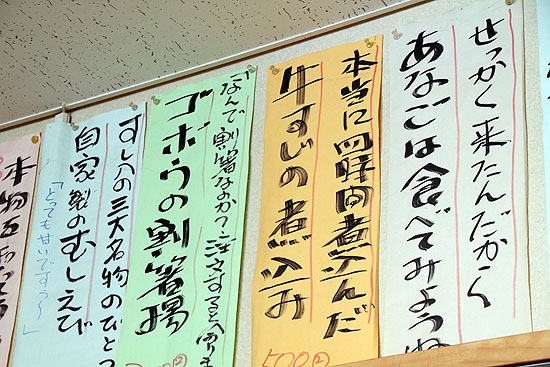 せっかく来たんだから
あなごは食べてみようね
本当に四時間煮込んだ
牛すじの煮込み
500円
「なんで割箸なのか?注文すると分かりま
ゴボウの割箸揚
すし八の三大名物のひとつ
自家製のむしえび
「とっても甘いですぅ〜」
本物